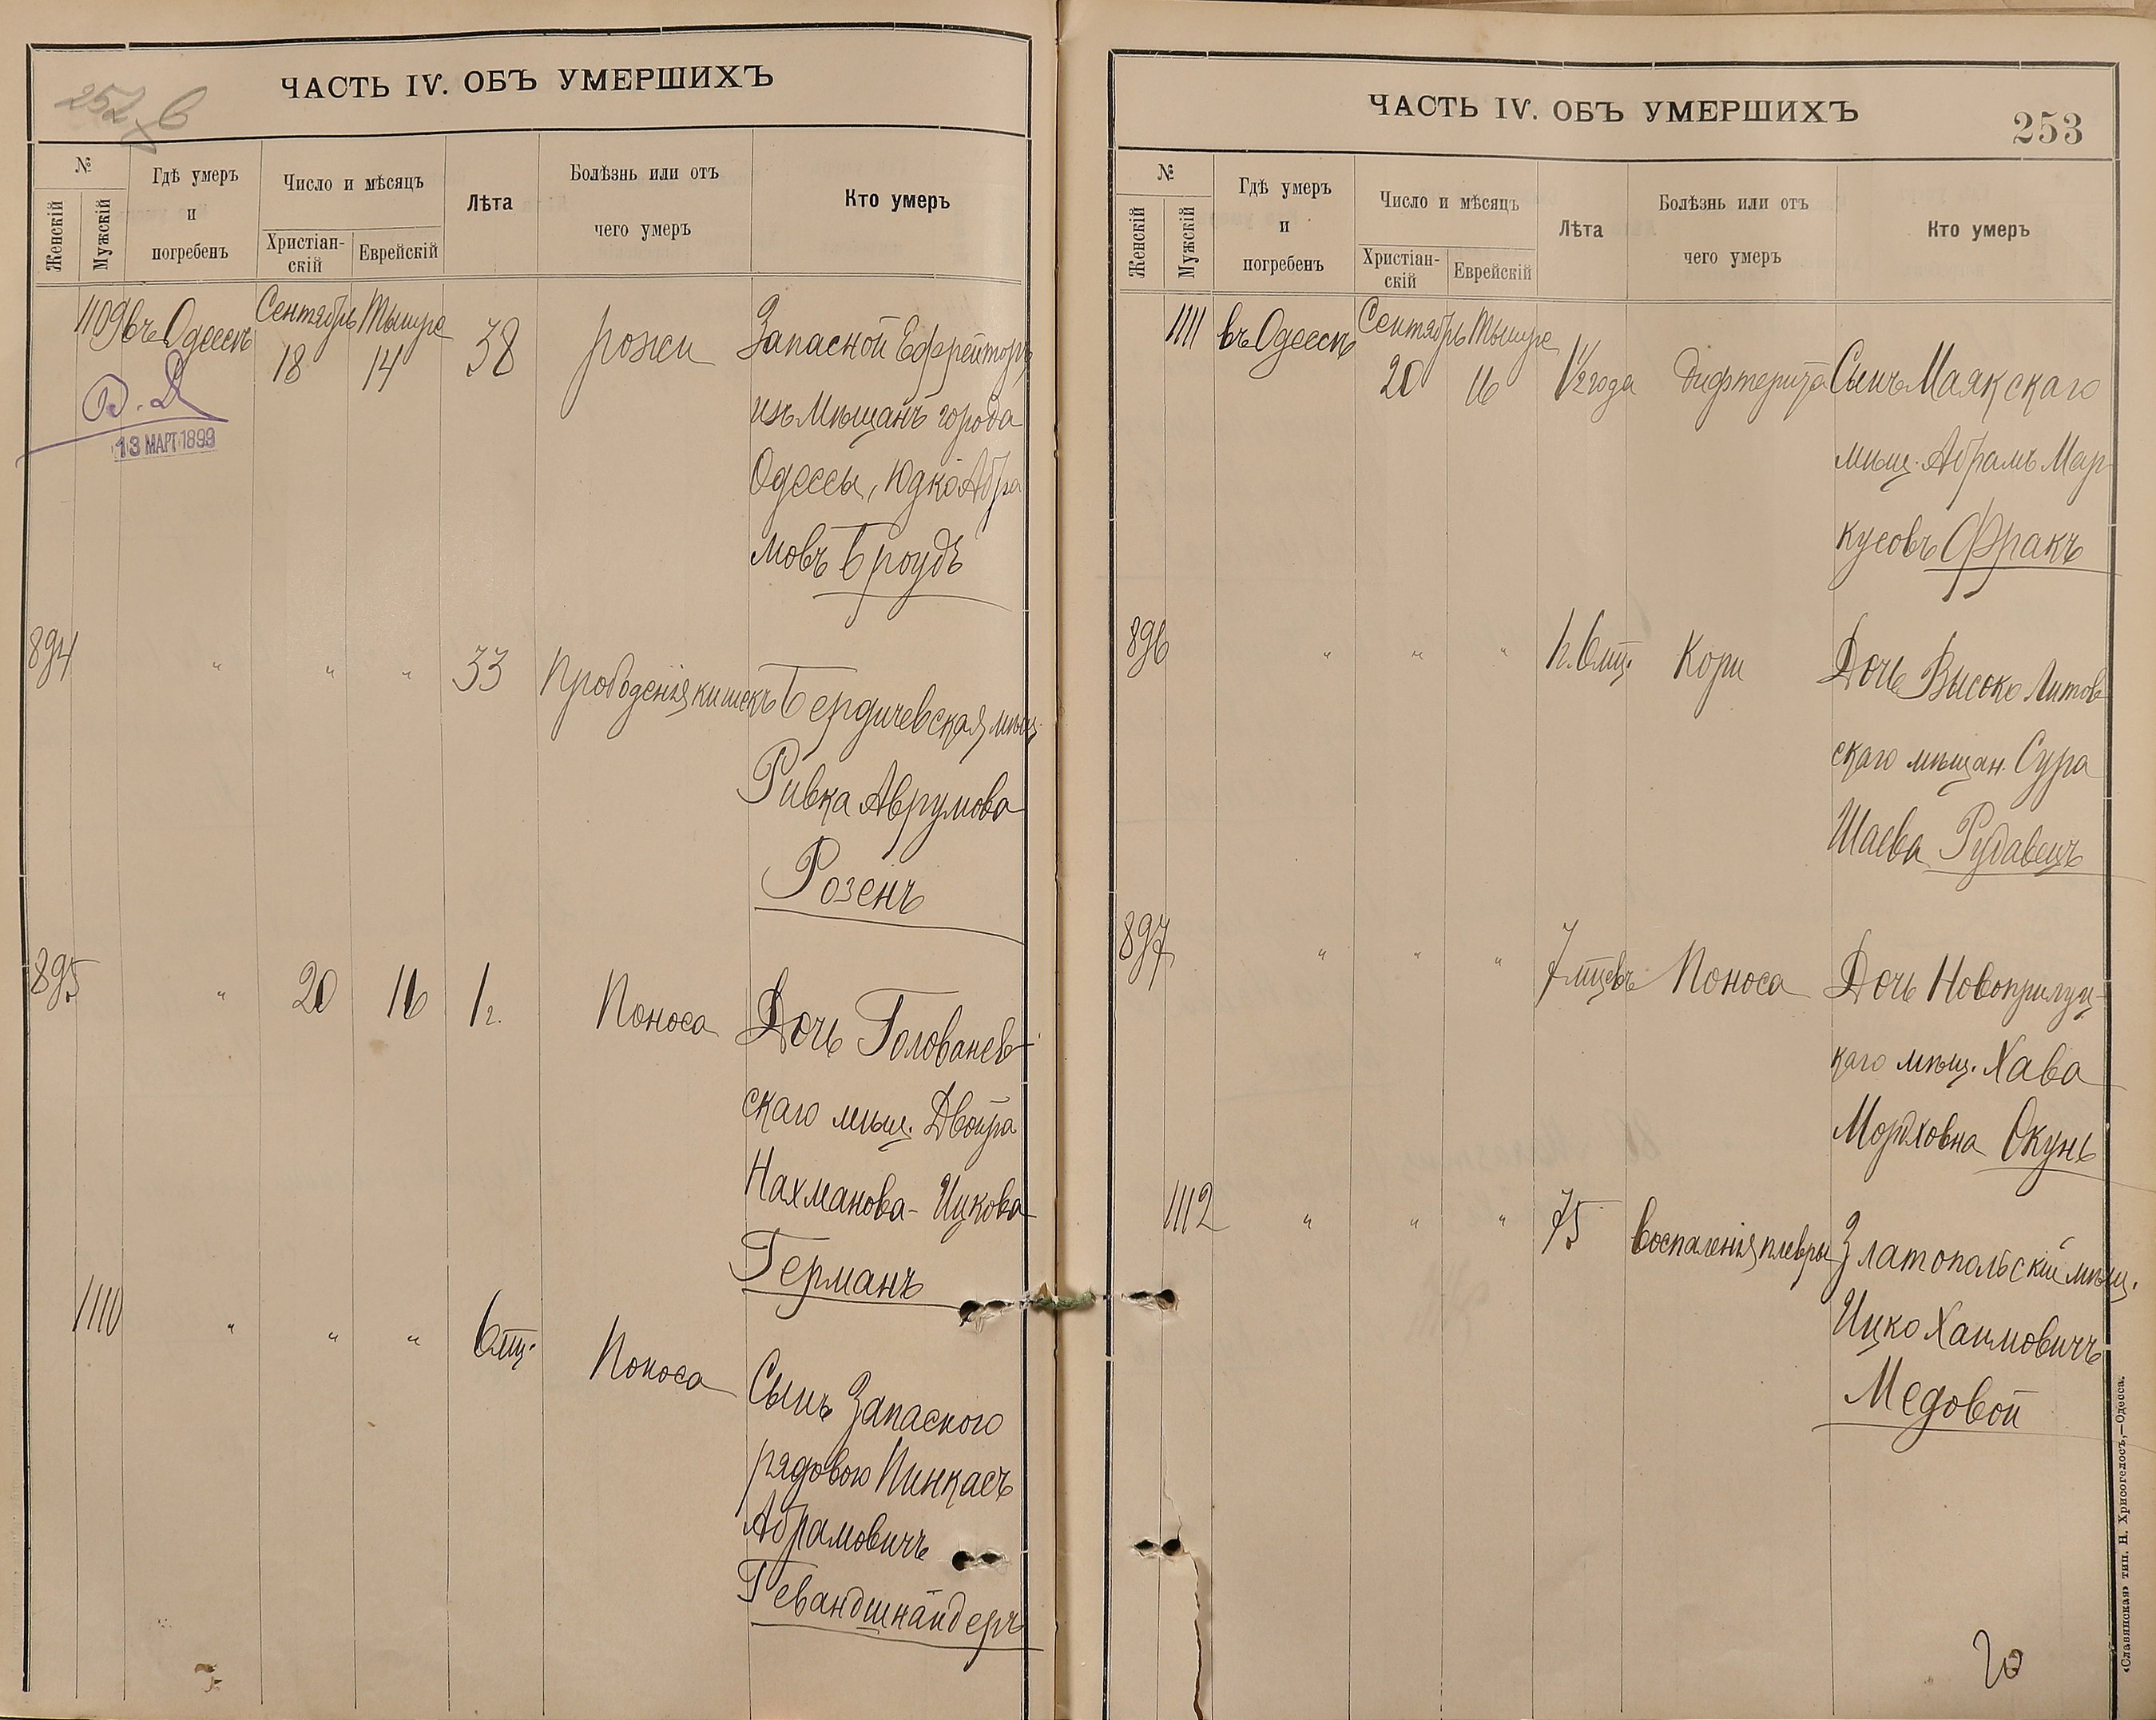 252 в
ЧАСТЬ IV. ОБЪ УМЕРШИХЪ
№
Женскій
Мужскій
Гдѣ умеръ
и
погребенъ
Число и мѣсяцъ
Христіан-
скій
Еврейскій
Лѣта
Болѣзнь или отъ
чего умеръ
Кто умеръ
1109 въ Одессѣ Сентябрь Тышре
18 14 38 рожи Запасной Ефрейторъ
изъ Мѣщанъ города
Одессы, Юдко Абра
мовъ Броудъ
13 МАРТ 1899
894 " " " 33 Прободенія кишекъ Бердичевская мѣщ.
Ривка Аврумова
Розенъ
895 " 20 16 1 г. Поноса Дочь Голованев-
скаго мѣщ. Двойра
Нахманова-Ицкова
Германъ
1110 " " " 6 мц. Поноса Сынъ Запаского
рядового Пинкасъ
Абрамовичъ
Гевандшнайдеръ
ЧАСТЬ IV. ОБЪ УМЕРШИХЪ
253
№
Женскій
Мужскій
Гдѣ умеръ
и
погребенъ
Число и мѣсяцъ
Христіан-
скій
Еврейскій
Лѣта
Болѣзнь или отъ
чего умеръ
Кто умеръ
1111 въ Одессѣ Сентябрь Тышре
20 16 1½ года дифтерита Сынъ Маякскаго
мѣщ. Абрамъ Мар-
кусовъ Фракъ
896 " " " 1 г. 6 мц. Кори Дочь Высоко Литов
скаго мѣщан. Сура
Шаева Рудавецъ
897 " " " 7 мцевъ Поноса Дочь Новоприлуц-
каго мѣщ. Хава
Мордховна Окунь
1112 " " " 75 воспаленія плевры Златопольскій мѣщ.
Ицко Хаимовичъ
Медовой
«Славянская» тип. Н. Хрисогелосъ,—Одесса.